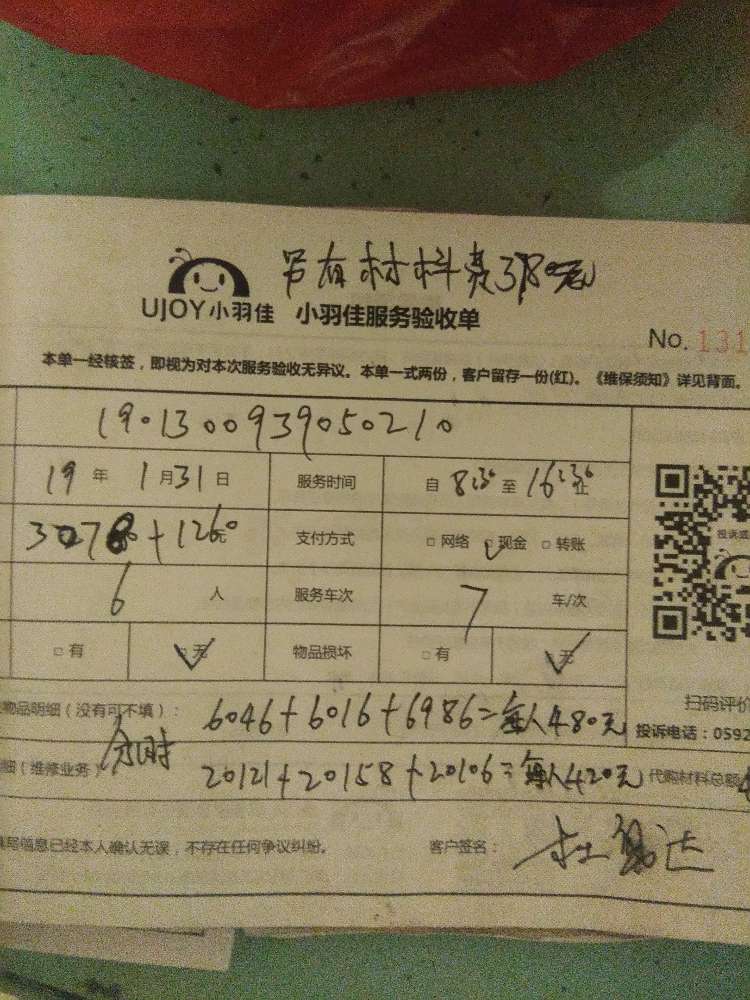 另有材料费380元
UJOY小羽佳 小羽佳服务验收单
No. 131
本单一经核签，即视为对本次服务验收无异议。本单一式两份，客户留存一份(红)。《维保须知》详见背面。
1901300939050210
19年1月31日 服务时间 自8:30至16:30止
3078+1260元 支付方式 □网络 □现金 □转账
投诉
6人 服务车次 7车/次
□有 □无 物品损坏 □有 □无
扫码评价
物品明细（没有可不填）： 6046+6016+6986=每人480元
投诉电话：0592
细（维修业务） 20121+20158+20106=每人420元 代购材料总额
信息已经本人确认无误，不存在任何争议纠纷。 客户签名：